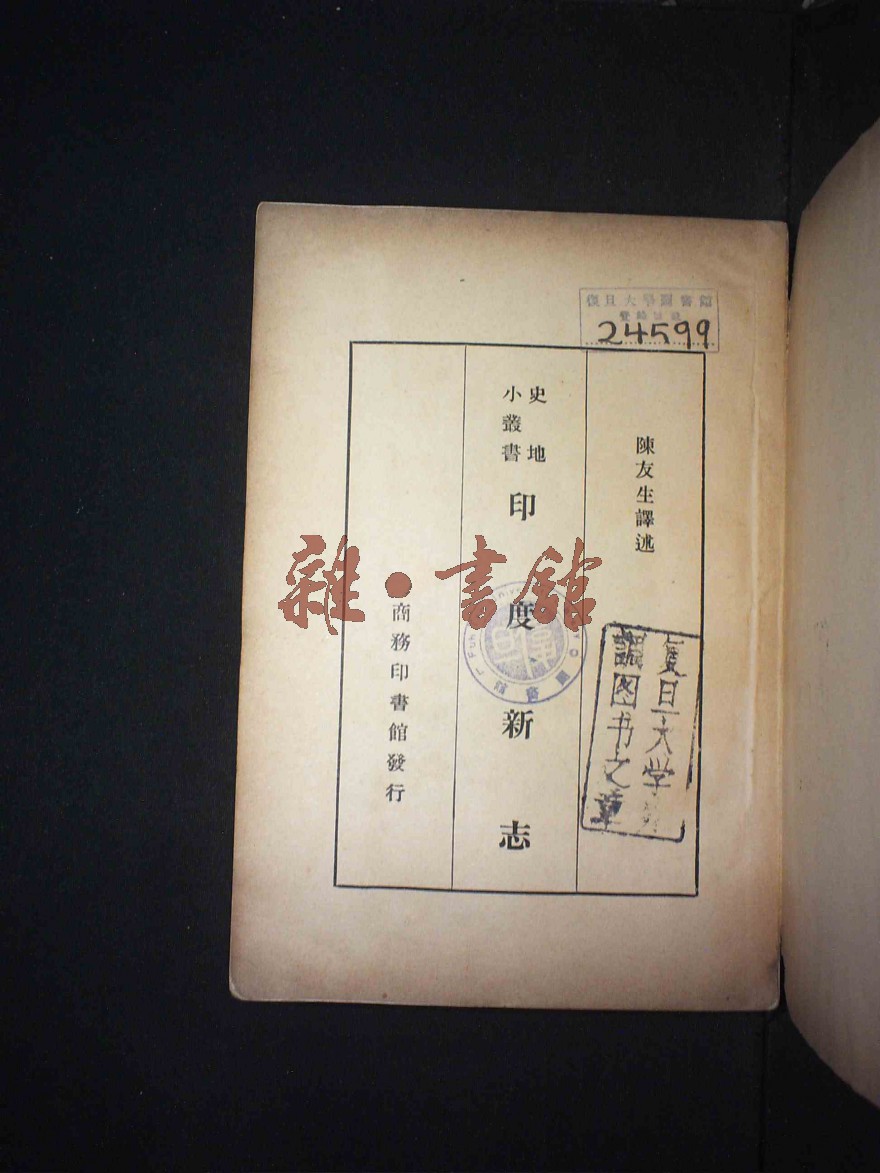 復旦大學圖書館
24599
陳友生譯述
史地
小叢書
印度新志
商務印書館發行
雜·書館
復旦大学
图书之章